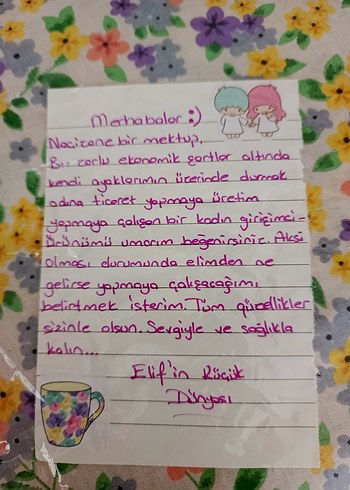 Merhabalar :)
Naçizane bir mektup,
Bu zorlu ekonomik şartlar altında
kendi ayaklarımın üzerinde durmak
adına ticaret yapmaya üretim
yapmaya çalışan bir kadın girişimci-
Ürünümü umarım beğenirsiniz. Aksi
olması durumunda elimden ne
gelirse yapmaya çalışacağımı
belirtmek isterim. Tüm güzellikler
sizinle olsun. Sevgiyle ve sağlıkla
kalın...
Elif'in Küçük
Dünyası